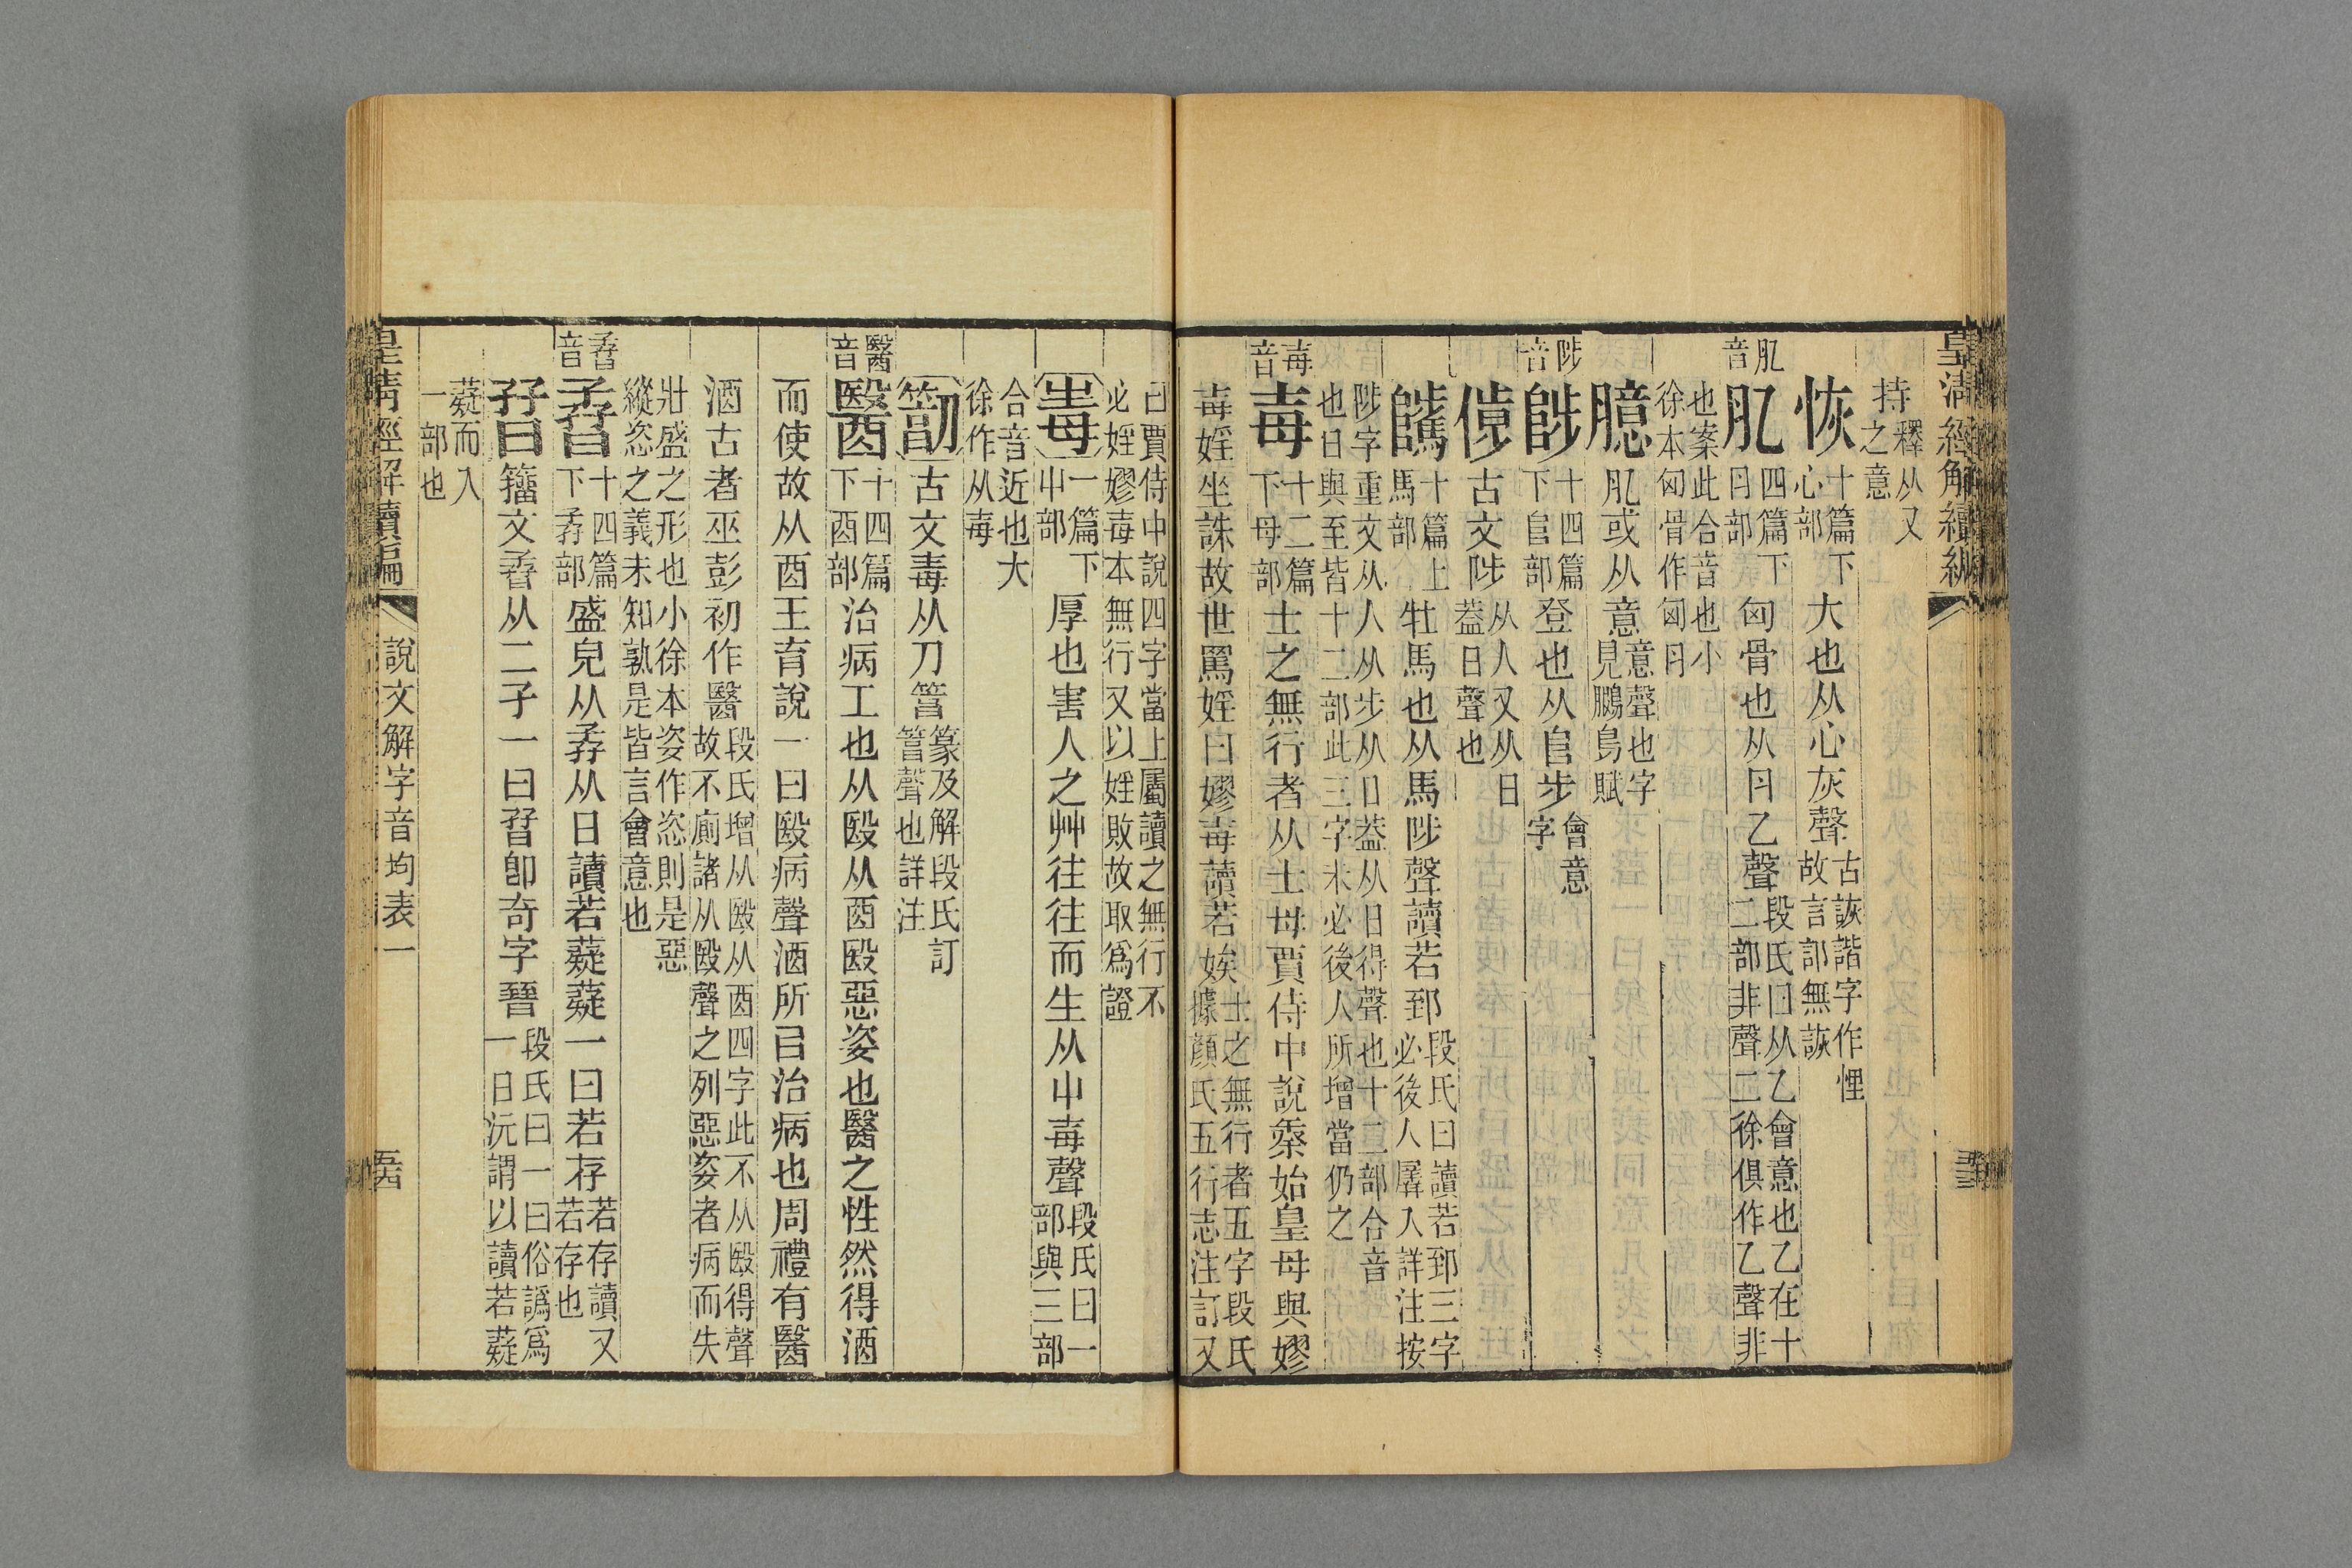 皇清經解續編
釋从又
持之意
恢十篇下心部大也从心灰聲古詼諧字作悝故言部無詼
肊音
肊四篇下肉部匈骨也从肉乙聲段氏曰从乙會意也乙在十二部非聲二徐俱作乙聲非
也案此合音也小徐本匈骨作匈肉
臆肊或从意意聲也字見鵩鳥賦
陟音
陟十四篇下𨸏部登也从𨸏步會意字
古文陟从人又从日葢日聲也
騭十篇上馬部牡馬也从馬陟聲讀若郅段氏曰讀若郅三字必後人羼入詳注按
陟字重文从人从步从日葢从日得聲也十二部合音
也日與至皆十二部此三字未必後人所增當仍之
毐音
毐十二篇下毋部士之無行者从士毋賈侍中說秦始皇母與嫪
毐婬坐誅故世罵婬曰嫪毐讀若娭士之無行者五字段氏據顏氏五行志注訂又
曰賈侍中說四字當上屬讀之無行不
必婬嫪毐本無行又以婬敗故取爲證
毒一篇下屮部厚也害人之艸往往而生从屮毐聲段氏曰一部與三部
合音近也大
徐作从毐
古文毒从刀篃篆及解段氏訂聲也詳注
醫音
醫十四篇下酉部治病工也从殹从酉殹惡姿也醫之性然得酒
而使故从酉王育說一曰殹病聲酒所㠯治病也周禮有醫
酒古者巫彭初作醫段氏增从殹从酉四字此不从殹得聲故不廁諸从殹聲之列惡姿者病而失
壯盛之形也小徐本姿作恣則是惡
縱恣之義未知孰是皆言會意也
孴音
孴十四篇下孨部盛皃从孨从日讀若薿薿一曰若存若存讀又若存也
籒文孴从二子一曰孴卽奇字簪段氏曰一曰俗譌爲一曰沅謂以讀若薿
薿而入
一部也
皇清經解續編
說文解字音均表一